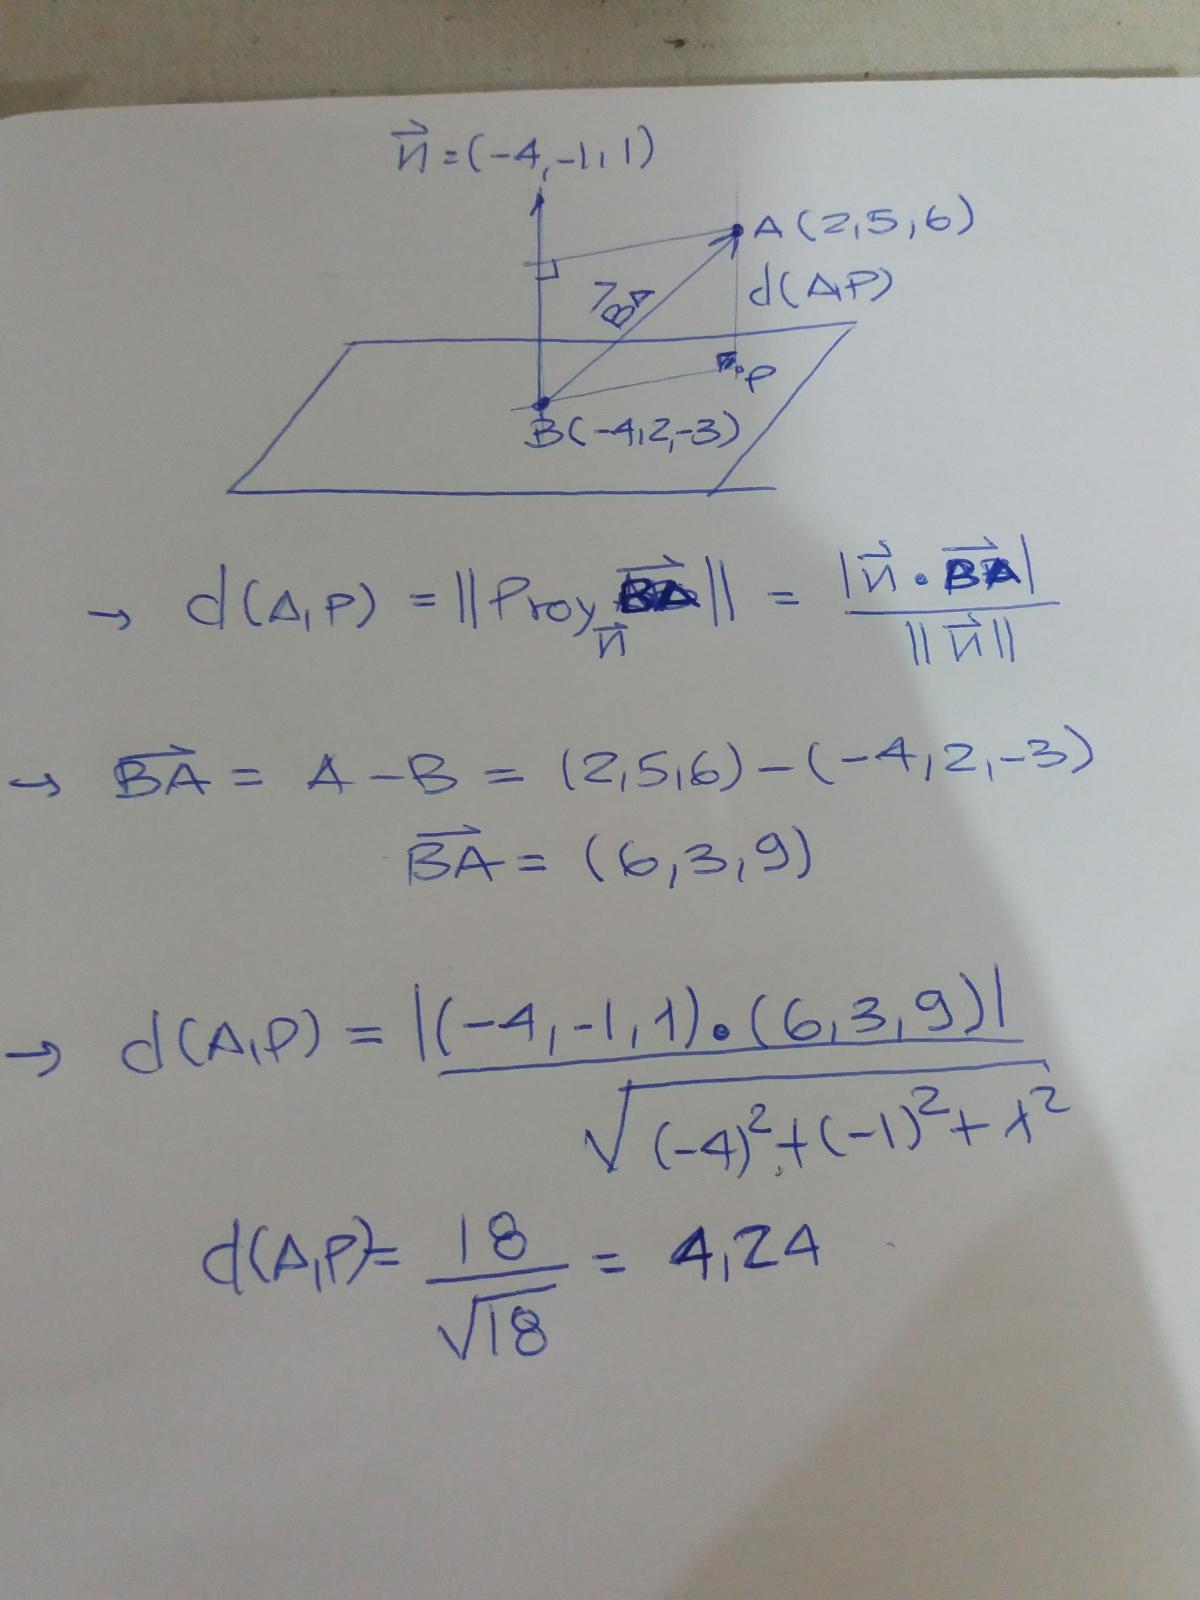 n⃗ = (-4,-1,1)
A(2,5,6)
BA⃗
d(A,P)
P
B(-4,2,-3)
→ d(A,P) = ||Proy_n⃗ BA⃗|| = |n⃗ • BA⃗| / ||n⃗||
→ BA⃗ = A - B = (2,5,6) - (-4,2,-3)
BA⃗ = (6,3,9)
→ d(A,P) = |(-4,-1,1) • (6,3,9)| / √((-4)² + (-1)² + 1²)
d(A,P) = 18 / √18 = 4,24